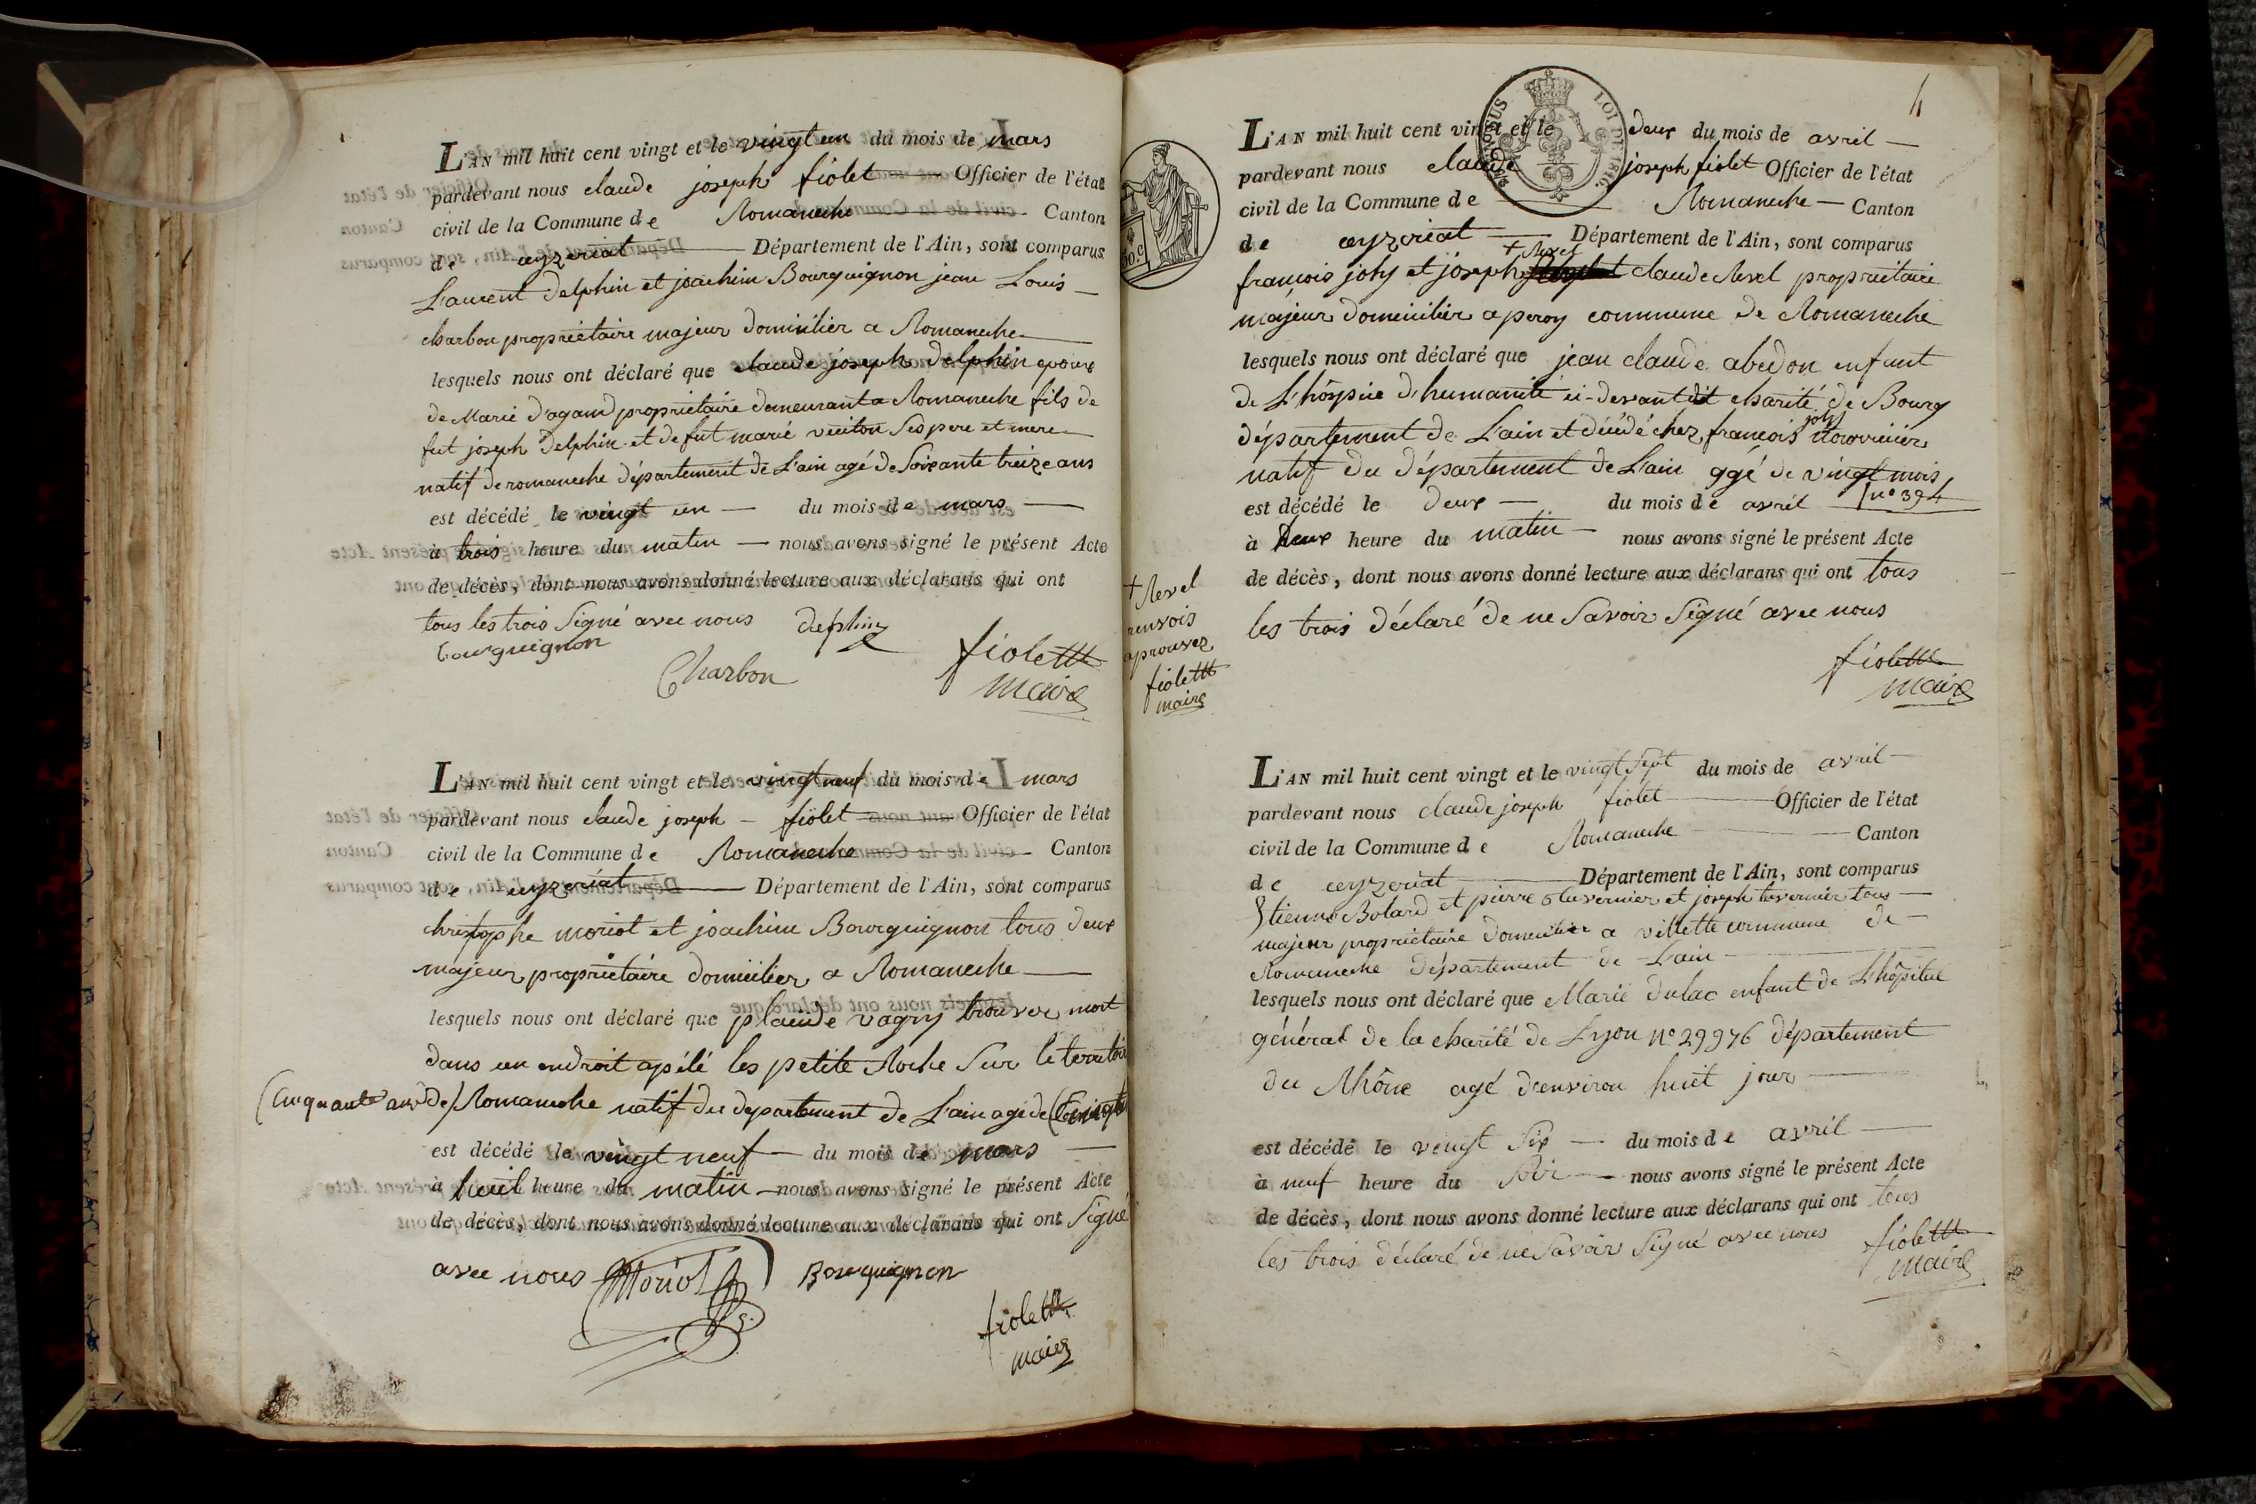 L'AN mil huit cent vingt et le vingt un du mois de mars
pardevant nous claude joseph fiolet Officier de l'état
civil de la Commune de Romaneche Canton
de ceyzeriat Département de l'Ain, sont comparus
Laurent delphin et joachim Bourguignon jean Louis
charbon propriétaire majeur domicilier a Romaneche
lesquels nous ont déclaré que claude joseph delphin epoux
de Marie dagand propriétaire demeurant a Romaneche fils de
fut joseph delphin et de fut marie Ses pere et mere
natif de romaneche département de L'ain agé de Soixante treize ans
est décédé le vingt un du mois de mars
à trois heure du matin nous avons signé le présent Acte
de décès, dont nous avons donné lecture aux déclarans qui ont
tous les trois Signé avec nous delphin
bourguignon
Charbon fiolett
maire
L'AN mil huit cent vingt et le vingt neuf du mois de mars
pardevant nous claude joseph fiolet Officier de l'état
civil de la Commune de Romaneche Canton
de ceyzeriat Département de l'Ain, sont comparus
christophe moriot et joachim Bourguignon tous deux
majeur propriétaire domicilier a Romaneche
lesquels nous ont déclaré que placide vagny trouver mort
dans un endroit apélé les petite Roche Sur le territoir
(Cinquante ans) de Romaneche natif du département de L'ain agé de
est décédé le vingt neuf du mois de mars
à huit heure du matin nous avons signé le présent Acte
de décès, dont nous avons donné lecture aux déclarans qui ont Signé
avec nous Moriot Bourguignon
fiolett
maire
4
LOI DE 1816.
L'AN mil huit cent vingt et le deux du mois de avril
pardevant nous claude joseph fiolet Officier de l'état
civil de la Commune de Romaneche Canton
de ceyzeriat Département de l'Ain, sont comparus
+ Revel
francois joly et joseph claude Revel propriétaire
majeur domicilier a peroy commune de Romaneche
lesquels nous ont déclaré que jean claude abedon enfant
de L'hôspice d'humanité ci-devant dit charité de Bourg
joly
département de L'ain et décédé chez francois nourricier
natif du département de L'ain agé de vingt mois
n° 394
est décédé le deux du mois de avril
à deux heure du matin nous avons signé le présent Acte
de décès, dont nous avons donné lecture aux déclarans qui ont tous
les trois déclaré de ne Savoir Signé avec nous
fiolett
maire
+ Revel
renvois
aprouvez
fiolett
maire
L'AN mil huit cent vingt et le vingt Sept du mois de avril
pardevant nous claude joseph fiolet Officier de l'état
civil de la Commune de Romaneche Canton
de ceyzeriat Département de l'Ain, sont comparus
Etienne Bolard et pierre tavernier et joseph tavernier tous
majeur propriétaire domicilier a villette commune de
Romaneche département de L'ain
lesquels nous ont déclaré que Marie dulac enfant de L'hôpital
général de la charité de Lyon N° 29976 département
du Rhône agé d'environ huit jour
est décédé le vingt Six du mois de avril
à neuf heure du Soir nous avons signé le présent Acte
de décès, dont nous avons donné lecture aux déclarans qui ont tous
les trois déclaré de ne Savoir Signé avec nous
fiolett
maire